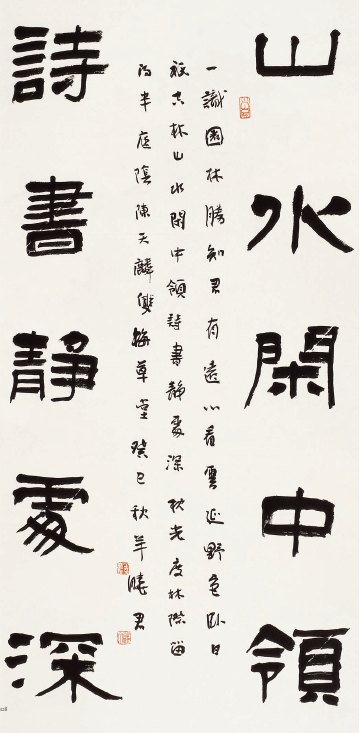 山水閑中領
一識園林勝知君有遠心看雲延野色卧日
古林山水閑中領詩書靜處深秋光度林際留
得半庭陰陳天麟雙梅草堂癸巳秋羊曉君
詩書靜處深